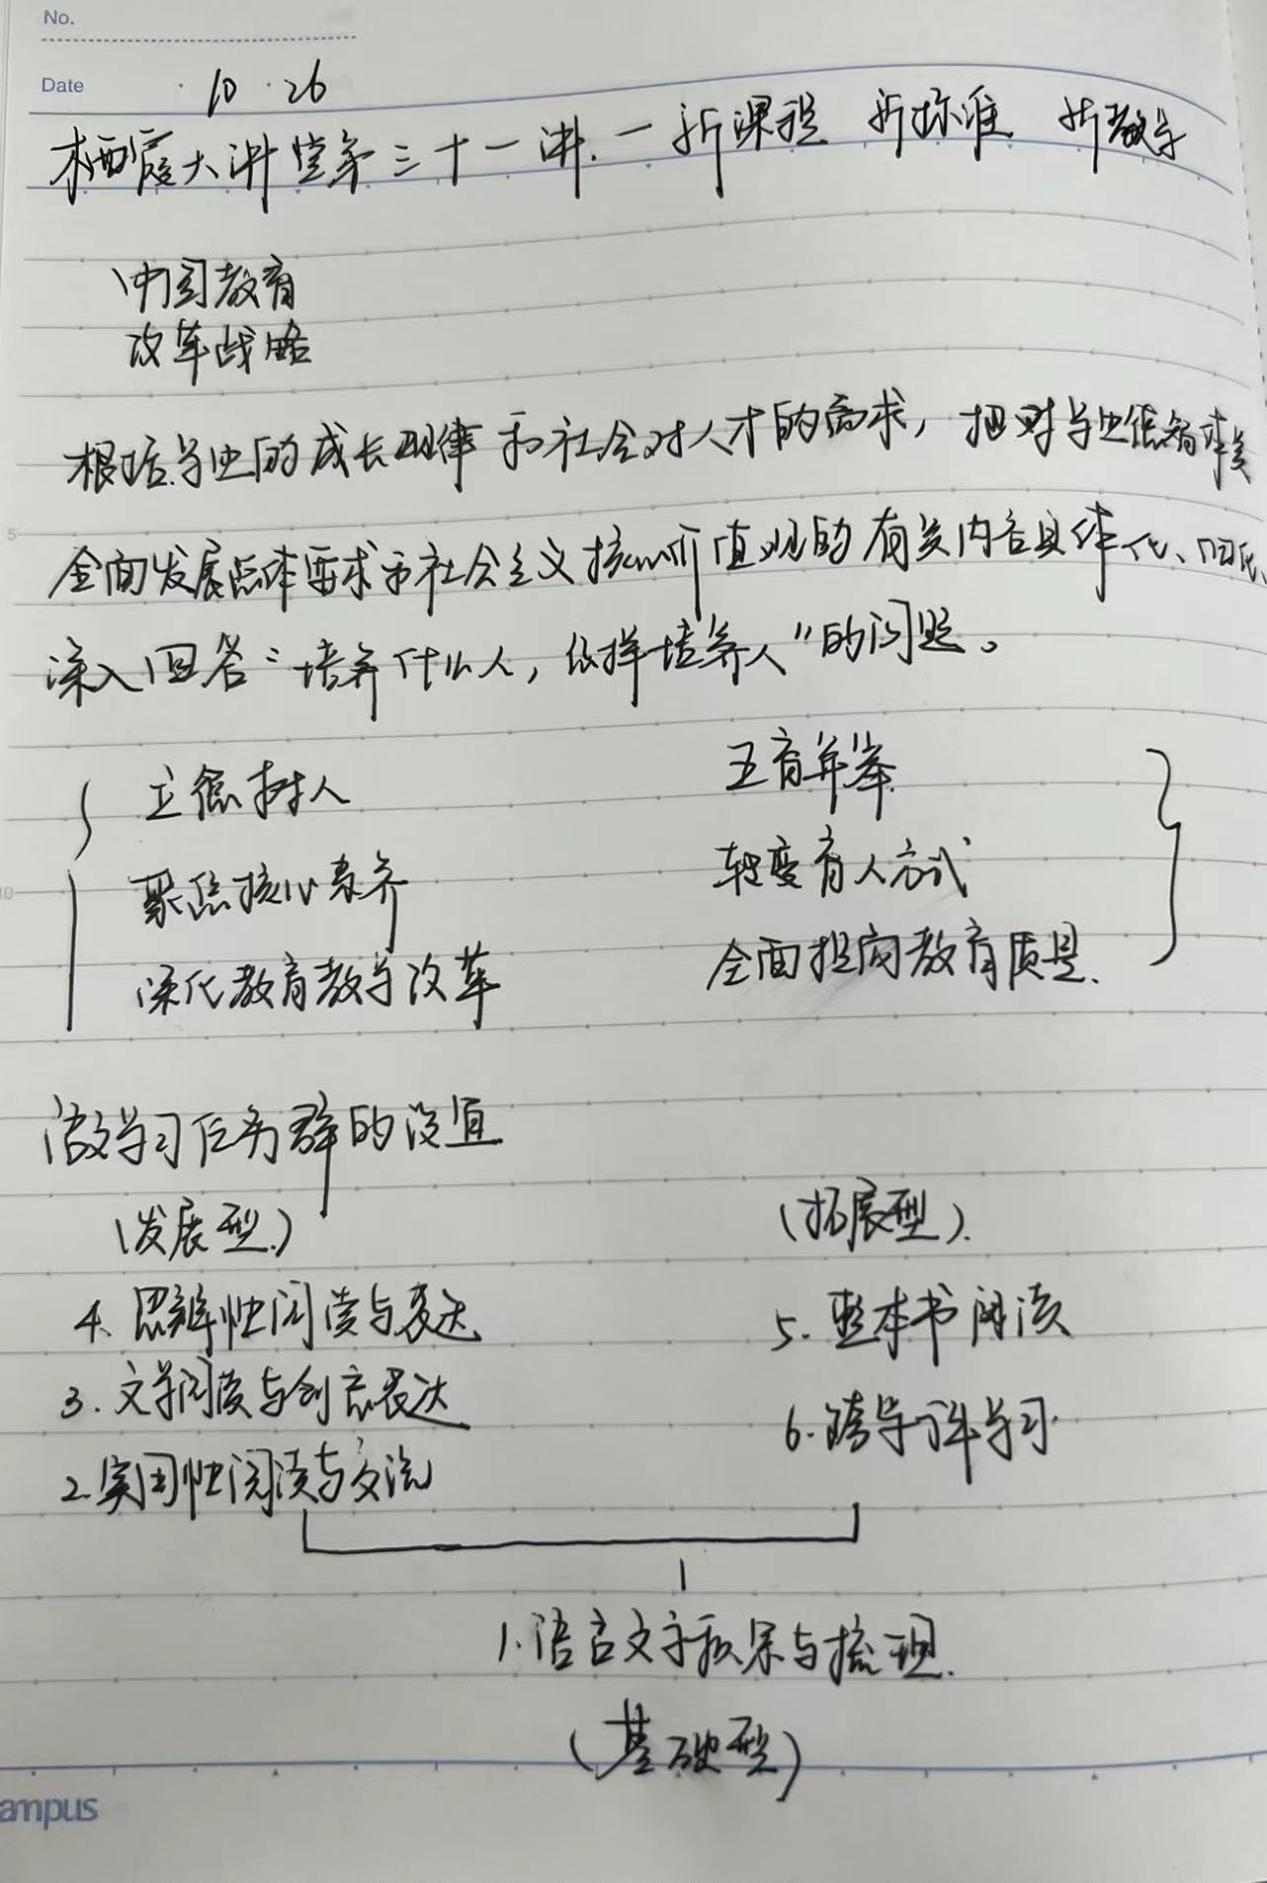 No.
Date 10.26
栖霞大讲堂第三十一讲.一新课程 新标准 新教学
中国教育
改革战略
根据学生的成长规律和社会对人才的需求，把对学生德智体美
全面发展总体要求和社会主义核心价值观的有关内容具体化、细化、
深入回答“培养什么人，怎样培养人”的问题。
立德树人 五育并举
聚焦核心素养 转变育人方式
深化教育教学改革 全面提高教育质量.
语文学习任务群的设置
(发展型.) (拓展型).
4、思辨性阅读与表达 5.整本书阅读
3.文学阅读与创意表达 6.跨学科学习.
2.实用性阅读与交流
1.语言文字积累与梳理.
(基础型)
ampus